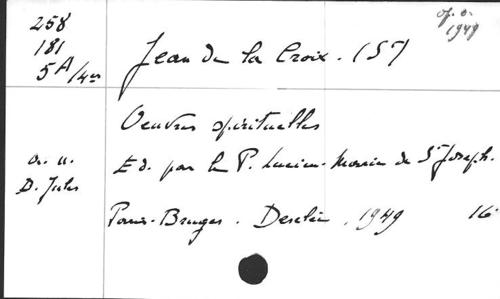 258
181
5A/4us
op. o.
1949
Jean de la Croix. (St)
Oeuvres spirituelles
a. u.
D. Jules
Ed. par le P. Lucien-Marie de St Joseph.
Paris-Bruges. Desclée, 1949 16°